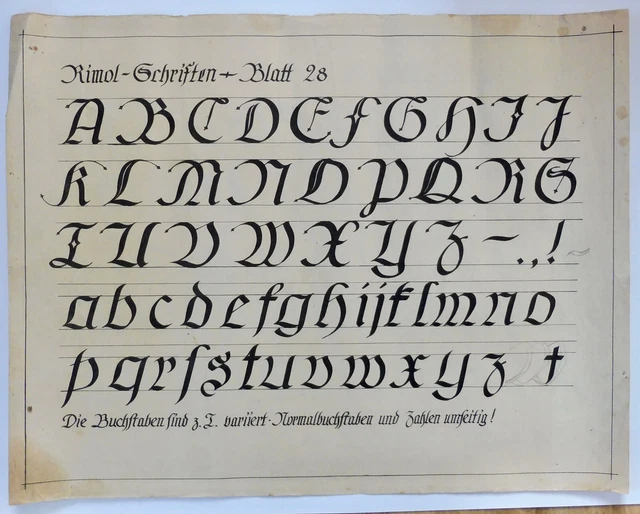 Rimol-Schriften + Blatt 28
A B C D E F G H I J
K L M N O P Q R S
T U V W X Y Z - . , !
a b c d e f g h i j k l m n o
p q r ſ s t u v w x y z †
Die Buchſtaben ſind z. T. variiert · Normalbuchſtaben und Zahlen umſeitig!